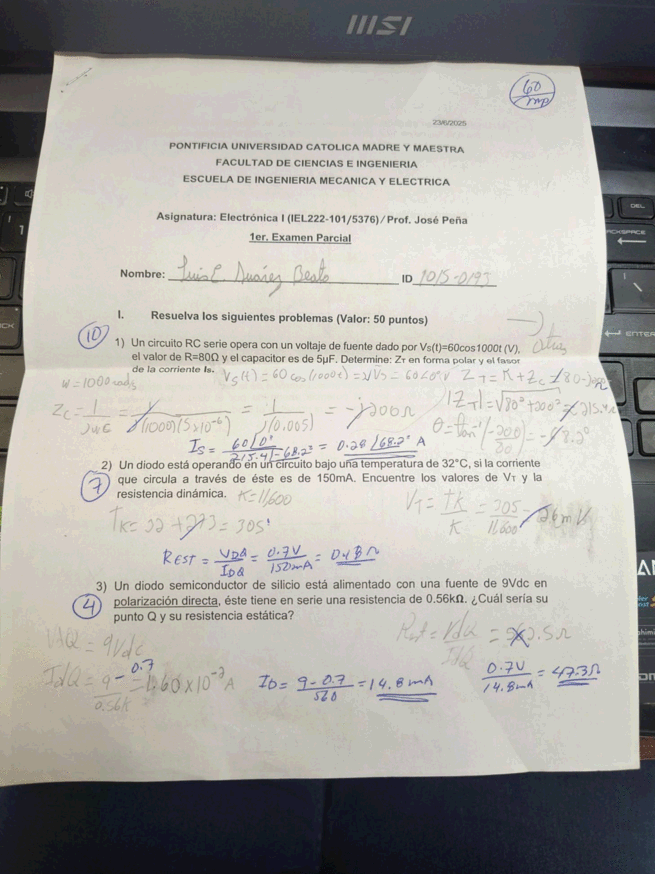 msi
60
23/6/2025
PONTIFICIA UNIVERSIDAD CATOLICA MADRE Y MAESTRA
FACULTAD DE CIENCIAS E INGENIERIA
ESCUELA DE INGENIERIA MECANICA Y ELECTRICA
Asignatura: Electrónica I (IEL222-101/5376) / Prof. José Peña
1er. Examen Parcial
Nombre: Luis E. Suarez Beato ID 1015-0193
I. Resuelve los siguientes problemas (Valor: 50 puntos)
10
1) Un circuito RC serie opera con un voltaje de fuente dado por Vs(t)=60cos1000t (V),
el valor de R=80Ω y el capacitor es de 5µF. Determine: ZT en forma polar y el fasor
de la corriente Is.
atras
Vs(t) = 60 cos(1000t) = Vs = 60∠0° V ZT = R + Zc = 80-j200Ω
W = 1000 rad/s
|ZT| = √80²+200² = 215.4Ω
Zc = 1/jwc = 1/j(1000)(5x10⁻⁶) = 1/j(0.005) = -j200Ω
θ = tan⁻¹(-200/80) = -68.2°
Is = 60∠0°/215.4∠-68.2° = 0.28∠68.2° A
2) Un diodo está operando en un circuito bajo una temperatura de 32°C, si la corriente
7
que circula a través de éste es de 150mA. Encuentre los valores de VT y la
resistencia dinámica. K = 11,600
TK = 32 + 273 = 305° VT = TK/K = 305/11,600 = 26mV
REST = VDQ/IDQ = 0.7V/150mA = 0.48Ω
3) Un diodo semiconductor de silicio está alimentado con una fuente de 9Vdc en
4
polarización directa, éste tiene en serie una resistencia de 0.56kΩ. ¿Cuál sería su
punto Q y su resistencia estática?
VdQ = 9Vdc
Rest = VdQ/IdQ = 562.5Ω
IdQ = 9-0.7/0.56K = 1.60x10⁻² A ID = 9-0.7/560 = 14.8mA 0.7V/14.8mA = 47.3Ω
DEL
BACKSPACE
ENTER